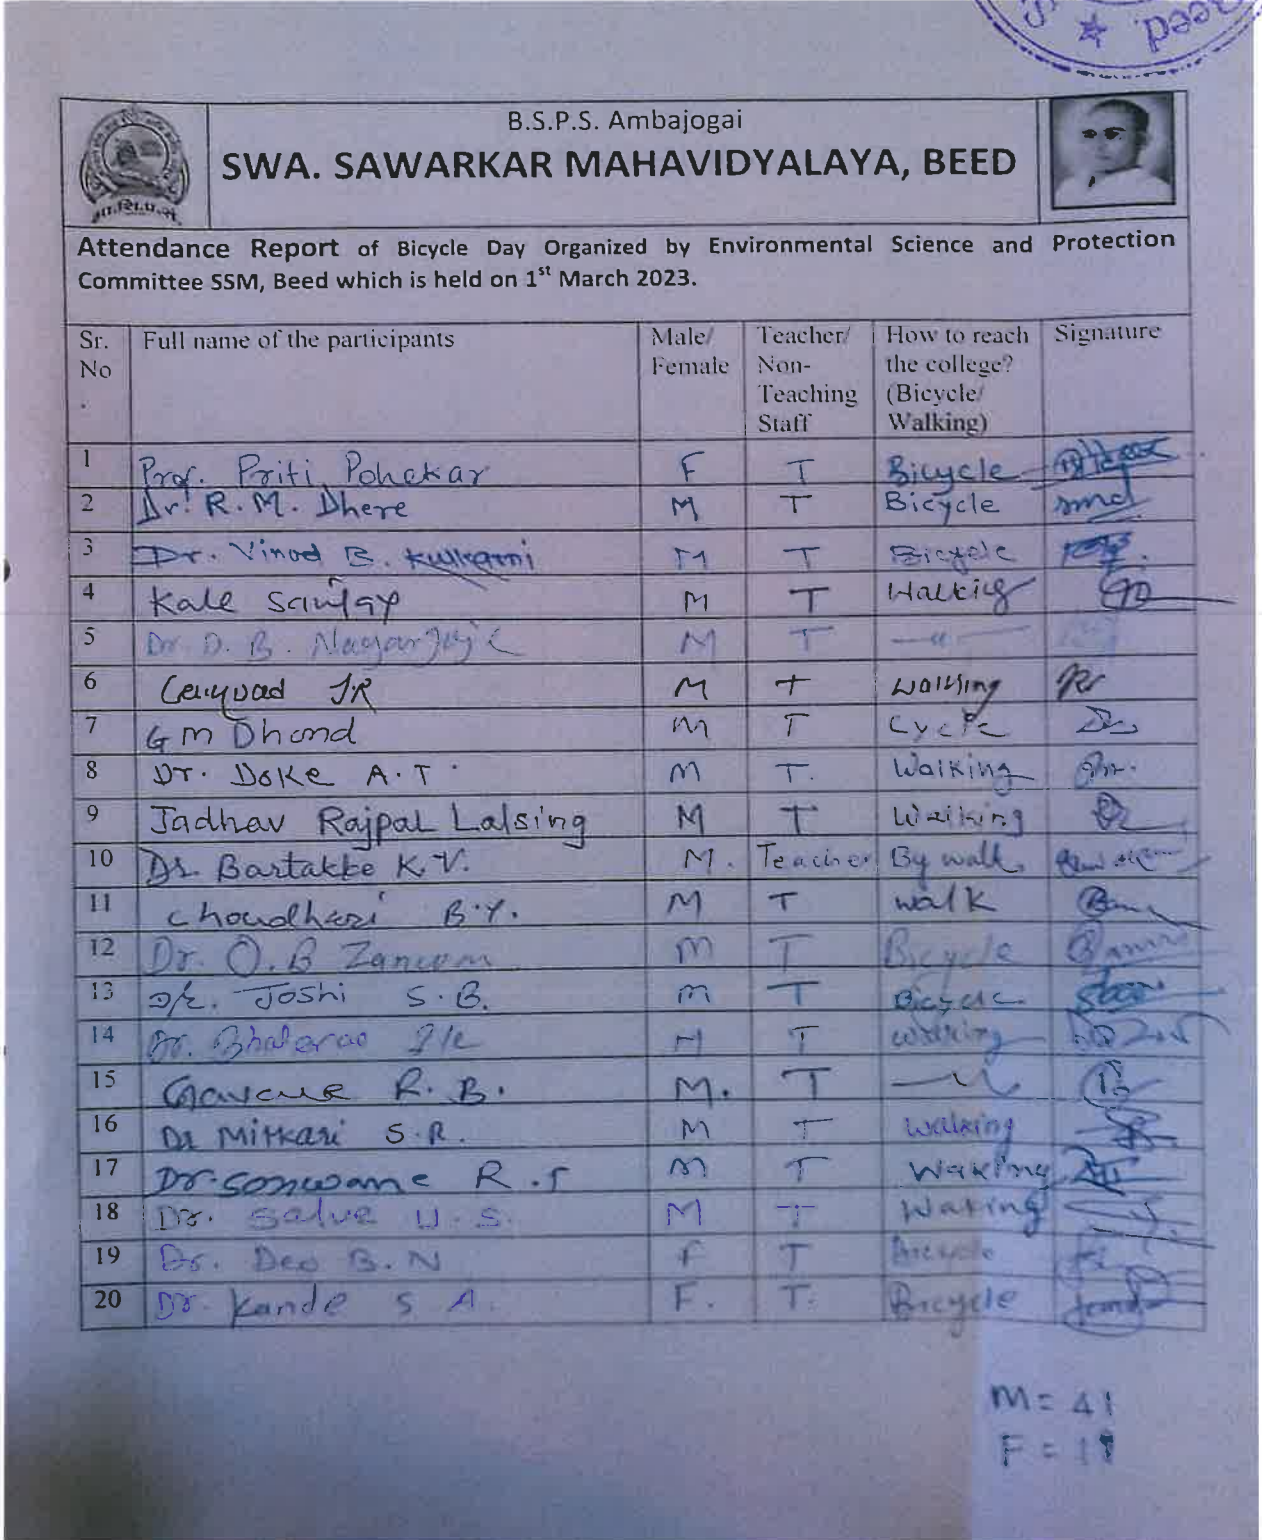 Beed.
B.S.P.S. Ambajogai
SWA. SAWARKAR MAHAVIDYALAYA, BEED
Attendance Report of Bicycle Day Organized by Environmental Science and Protection
Committee SSM, Beed which is held on 1st March 2023.
Sr. No. Full name of the participants Male/ Female Teacher/ Non-Teaching Staff How to reach the college? (Bicycle/ Walking) Signature
1 Prof. Priti Pohekar F T Bicycle
2 Dr. R.M. Dhere M T Bicycle
3 Dr. Vinod B. Kulkarni M T Bicycle
4 Kale Sanjay M T Walking
5 Dr. D. B. M T —"—
6 JR M T walking
7 G M Dhond M T Cycle
8 Dr. Doke A.T. M T. Walking
9 Jadhav Rajpal Lalsing M T Walking
10 Dr. Bartakke K.V. M. Teacher By walk
11 Choudhari B.Y. M T walk
12 Dr. O.B M T Bicycle
13 Joshi S.B. M T Bicycle
14 Dr. Bhalerao M T walking
15 R. B. M. T —"—
16 Dr Mitkari S.R. M T walking
17 Dr. Sonwane R.S M T Waking
18 Dr. Salve U.S. M T Waking
19 Dr. Deo B.N F T Bicycle
20 Dr. Kande S A. F. T. Bicycle
M = 41
F =